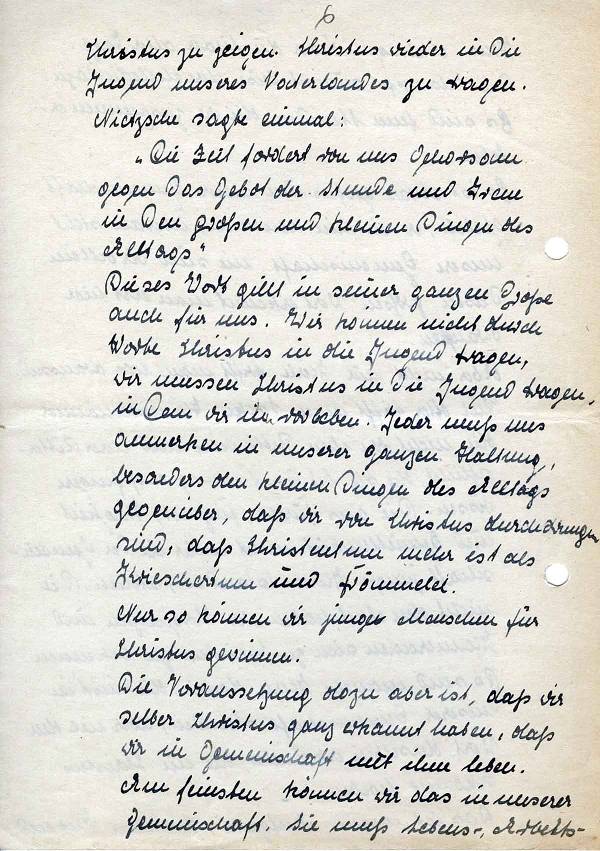 6
Christus zu zeigen. Christus wieder in die
Jugend unseres Vaterlandes zu tragen.
Nietzsche sagte einmal:
„Die Zeit fordert von uns Gehorsam
gegen das Gebot der Stunde und Treue
in den großen und kleinen Dingen des
Alltags"
Dieses Wort gilt in seiner ganzen Größe
auch für uns. Wir können nicht durch
Worte Christus in die Jugend tragen,
wir müssen Christus in die Jugend tragen,
in Dem wir ihn vorleben. Jeder muß uns
anmerken in unserer ganzen Haltung,
besonders den kleinen Dingen des Alltags
gegenüber, daß wir von Christus durchdrungen
sind, daß Christentum mehr ist als
Kriechertum und Frömmelei.
Nur so können wir junge Menschen für
Christus gewinnen.
Die Voraussetzung dazu aber ist, daß wir
selber Christus ganz erkannt haben, daß
wir in Gemeinschaft mit ihm leben.
Am feinsten können wir das in unserer
Gemeinschaft. Sie muß Lebens-, Arbeits-